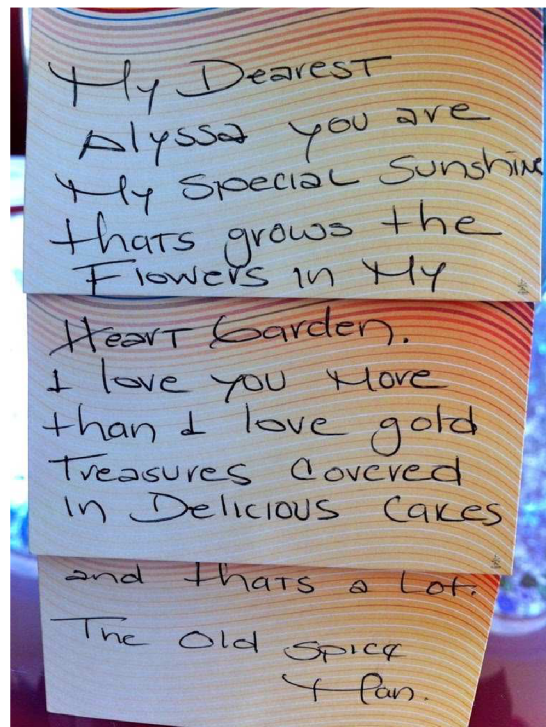 My Dearest
Alyssa you are
My special sunshine
thats grows the
Flowers in My
Heart Garden.
I love you More
than I love gold
Treasures Covered
in Delicious Cakes
and thats a Lot.
The Old Spice
Man.